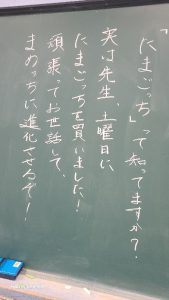 「たまごっち」って知ってますか？
実は先生、土曜日に
たまごっちを買いました！
頑張ってお世話して、
まめっちに進化させるぞ！